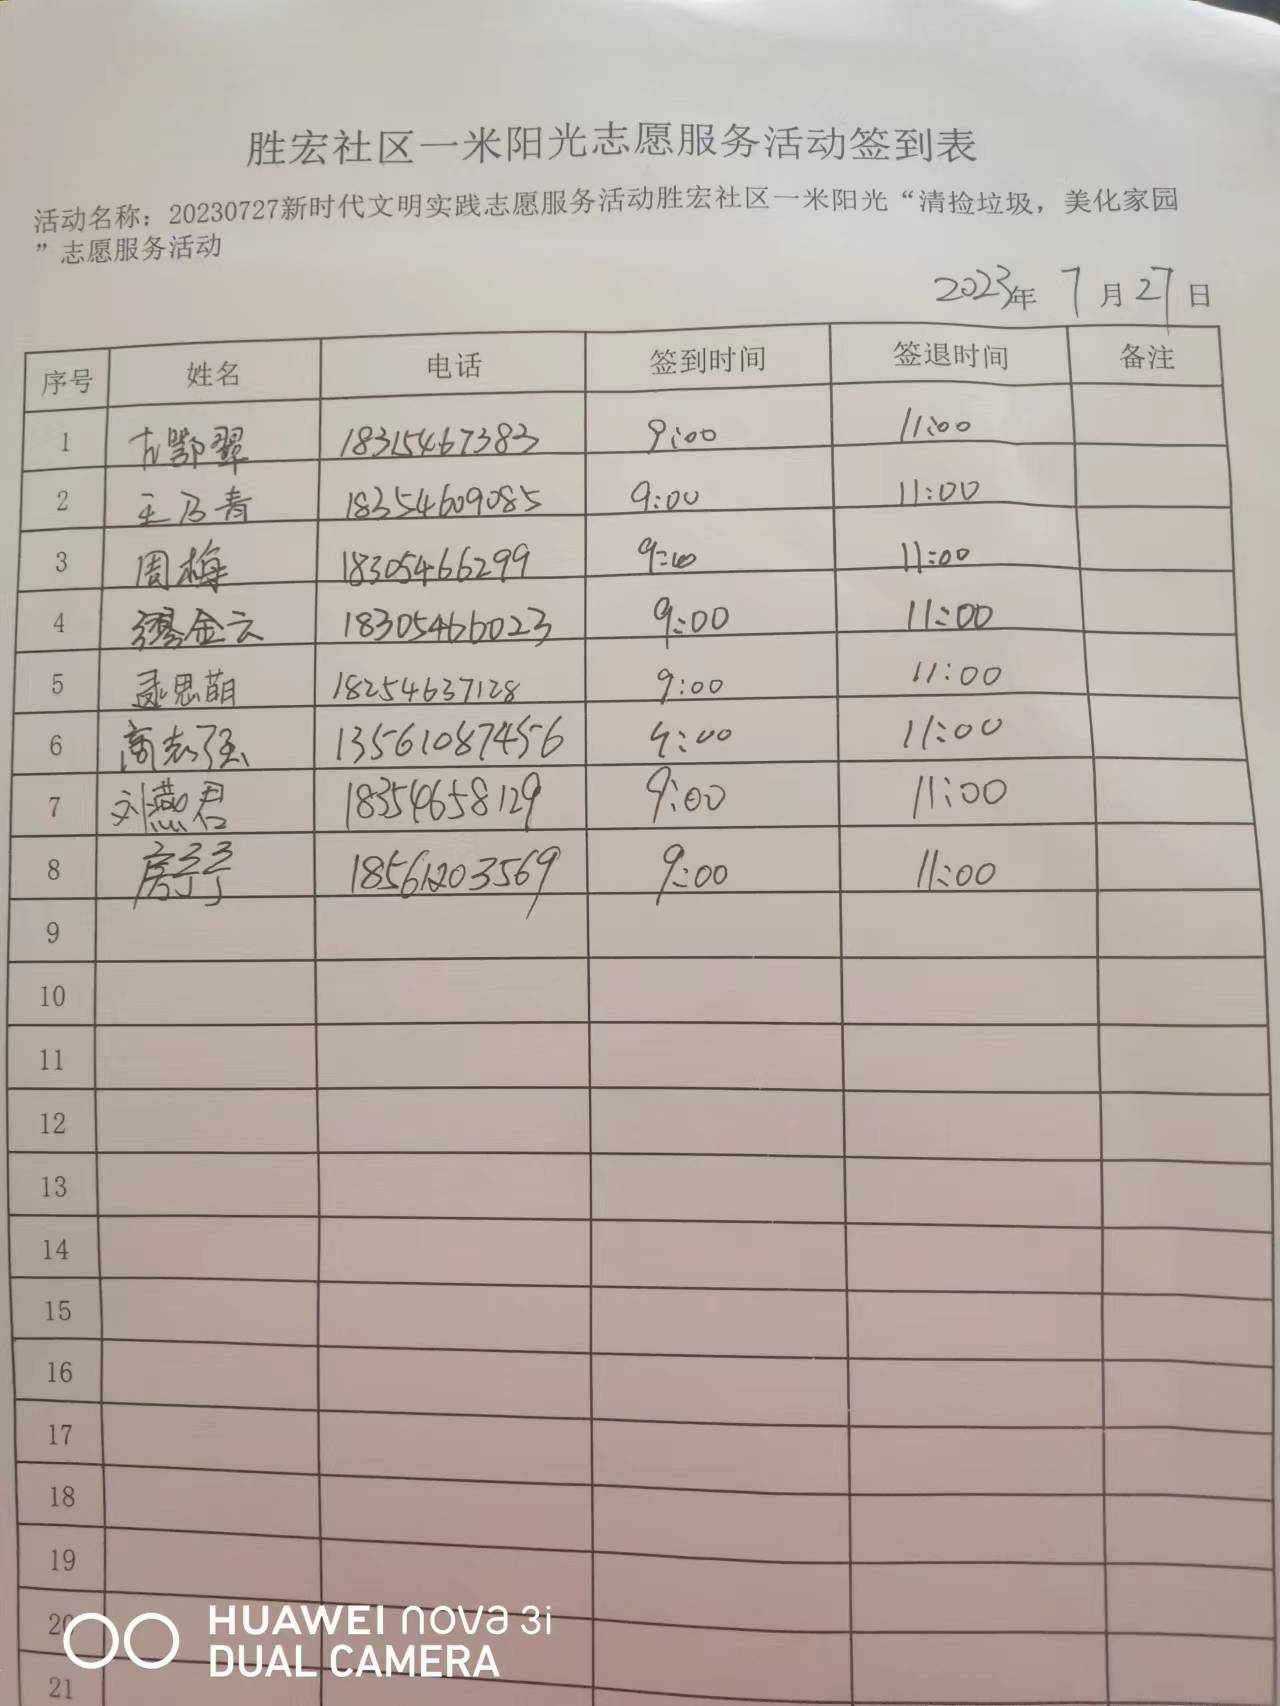 胜宏社区一米阳光志愿服务活动签到表
活动名称：20230727新时代文明实践志愿服务活动胜宏社区一米阳光“清捡垃圾，美化家园
”志愿服务活动
2023年 7月27日
序号 姓名 电话 签到时间 签退时间 备注
1 18315467383 9:00 11:00
2 王乃青 18354609085 9:00 11:00
3 周梅 18305466299 9:00 11:00
4 缪金云 18305466023 9:00 11:00
5 孟思萌 18254637128 9:00 11:00
6 商志强 13561087456 9:00 11:00
7 刘燕君 18354658129 9:00 11:00
8 房 18561203569 9:00 11:00
9
10
11
12
13
14
15
16
17
18
19
20
21
HUAWEI nova 3i
DUAL CAMERA